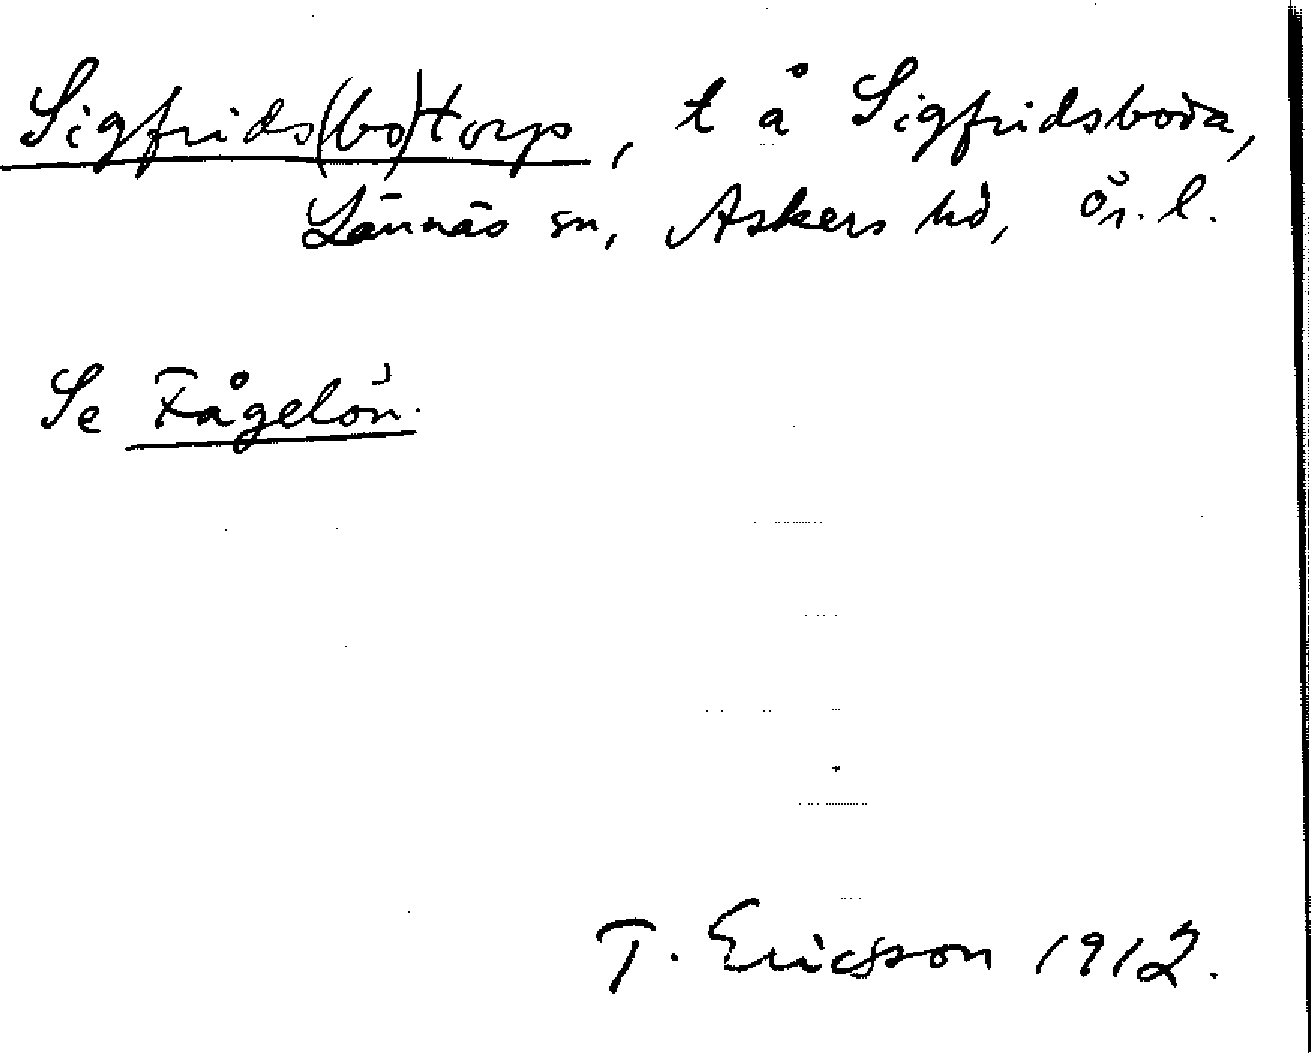 Sigfrids(bo)torp, t å Sigfridsboda,
Lännäs sn, Askers hd, Ör. l.
Se Fågelön.
T. Ericsson 1912.